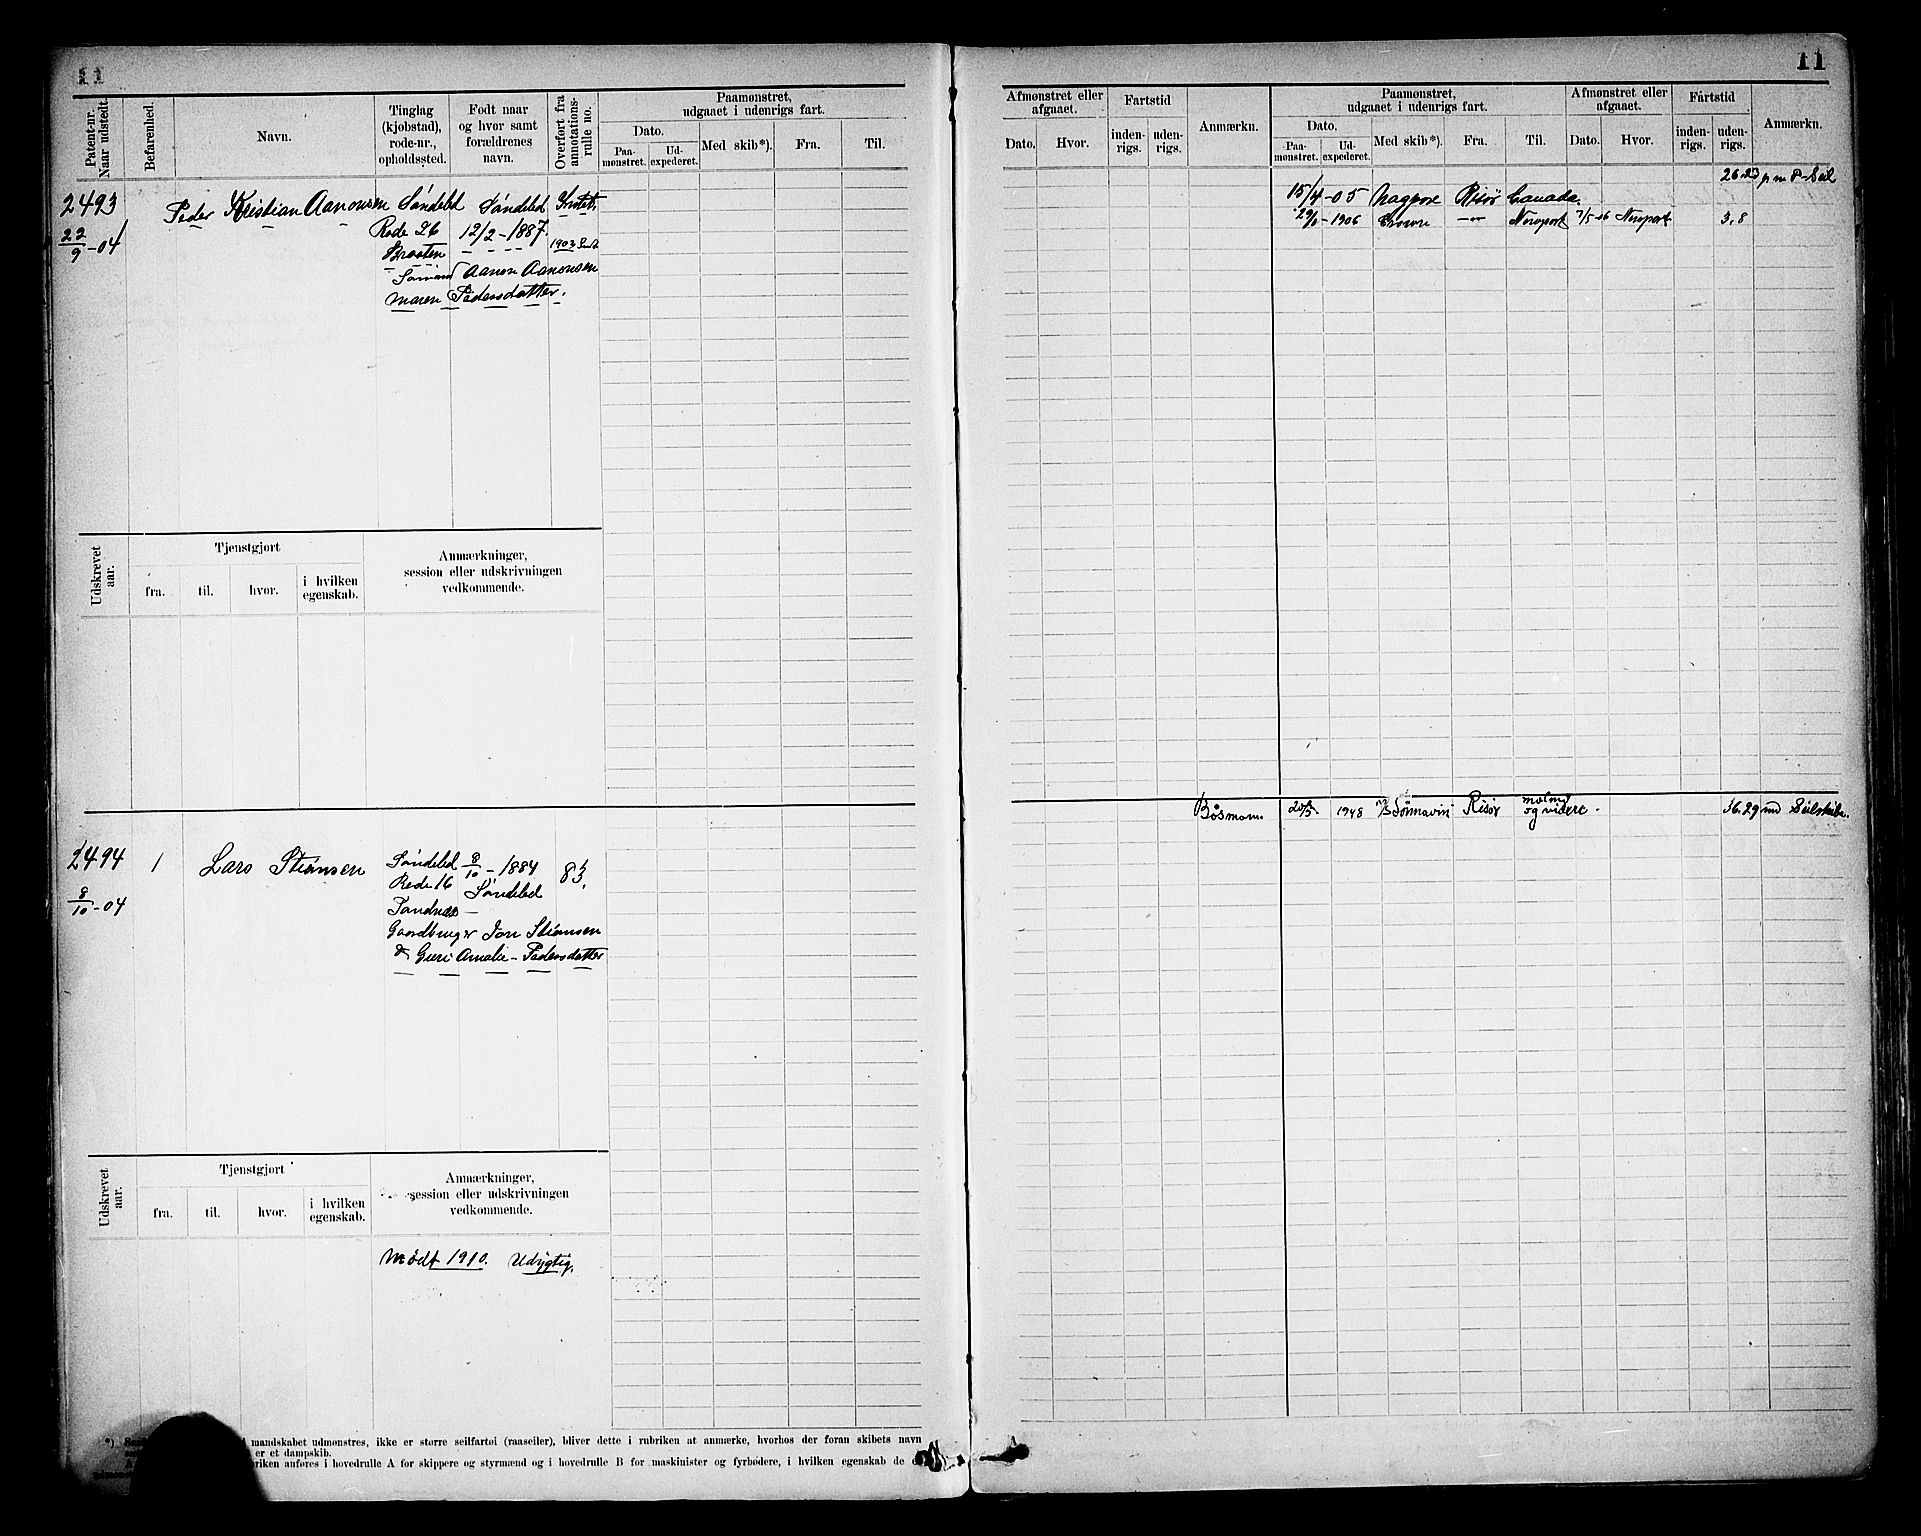 11
11
Patent-nr.
Naar udstedt.
Befarenhed.
Navn.
Tinglag
(kjøbstad),
rode-nr.,
opholdssted.
Født naar
og hvor samt
forældrenes
navn.
Overført fra
annotations-
rulle no.
Paamønstret,
udgaaet i udenrigs fart.
Dato.
Paa-
mønstret.
Ud-
expederet.
Med skib*).
Fra.
Til.
Afmønstret eller
afgaaet.
Dato.
Hvor.
Fartstid
inden-
rigs.
uden-
rigs.
Anmærkn.
Paamønstret,
udgaaet i udenrigs fart.
Dato.
Paa-
mønstret.
Ud-
expederet.
Med skib*).
Fra.
Til.
Afmønstret eller
afgaaet.
Dato.
Hvor.
Fartstid
inden-
rigs.
uden-
rigs.
Anmærkn.
2493
22/9 - 04
Peder Kristian Aanonsen
Søndeled
Rode 26
Braaten
Søndeled
12/2 - 1887.
Aanon Aanonsen
Maren Pedersdatter.
1903
26.23
15/4 - 05 Nagpore Risør Canada
1906 -"- Newport Newport 3,8
Udskrevet
aar.
Tjenstgjort
fra.
til.
hvor.
i hvilken
egenskab.
Anmærkninger,
session eller udskrivningen
vedkommende.
2494
8/10 - 04
1
Lars Stiansen
Søndeled
Rode 16
8/10 - 1884
Søndeled
83.
Gaardbruger Jon Stiansen
& Amalie Pedersdatter
Båsmann. 1948 Risør
og videre.
36.29
Udskrevet
aar.
Tjenstgjort
fra.
til.
hvor.
i hvilken
egenskab.
Anmærkninger,
session eller udskrivningen
vedkommende.
Mødt 1910. Udygtig.
*) mandskabet udmønstres, ikke er større seilfartøi (raaseiler), bliver dette i rubriken at anmærke, hvorhos der foran skibets navn
er et dampskib.
anføres i hovedrulle A for skippere og styrmænd og i hovedrulle B for maskinister og fyrbødere, i hvilken egenskab de